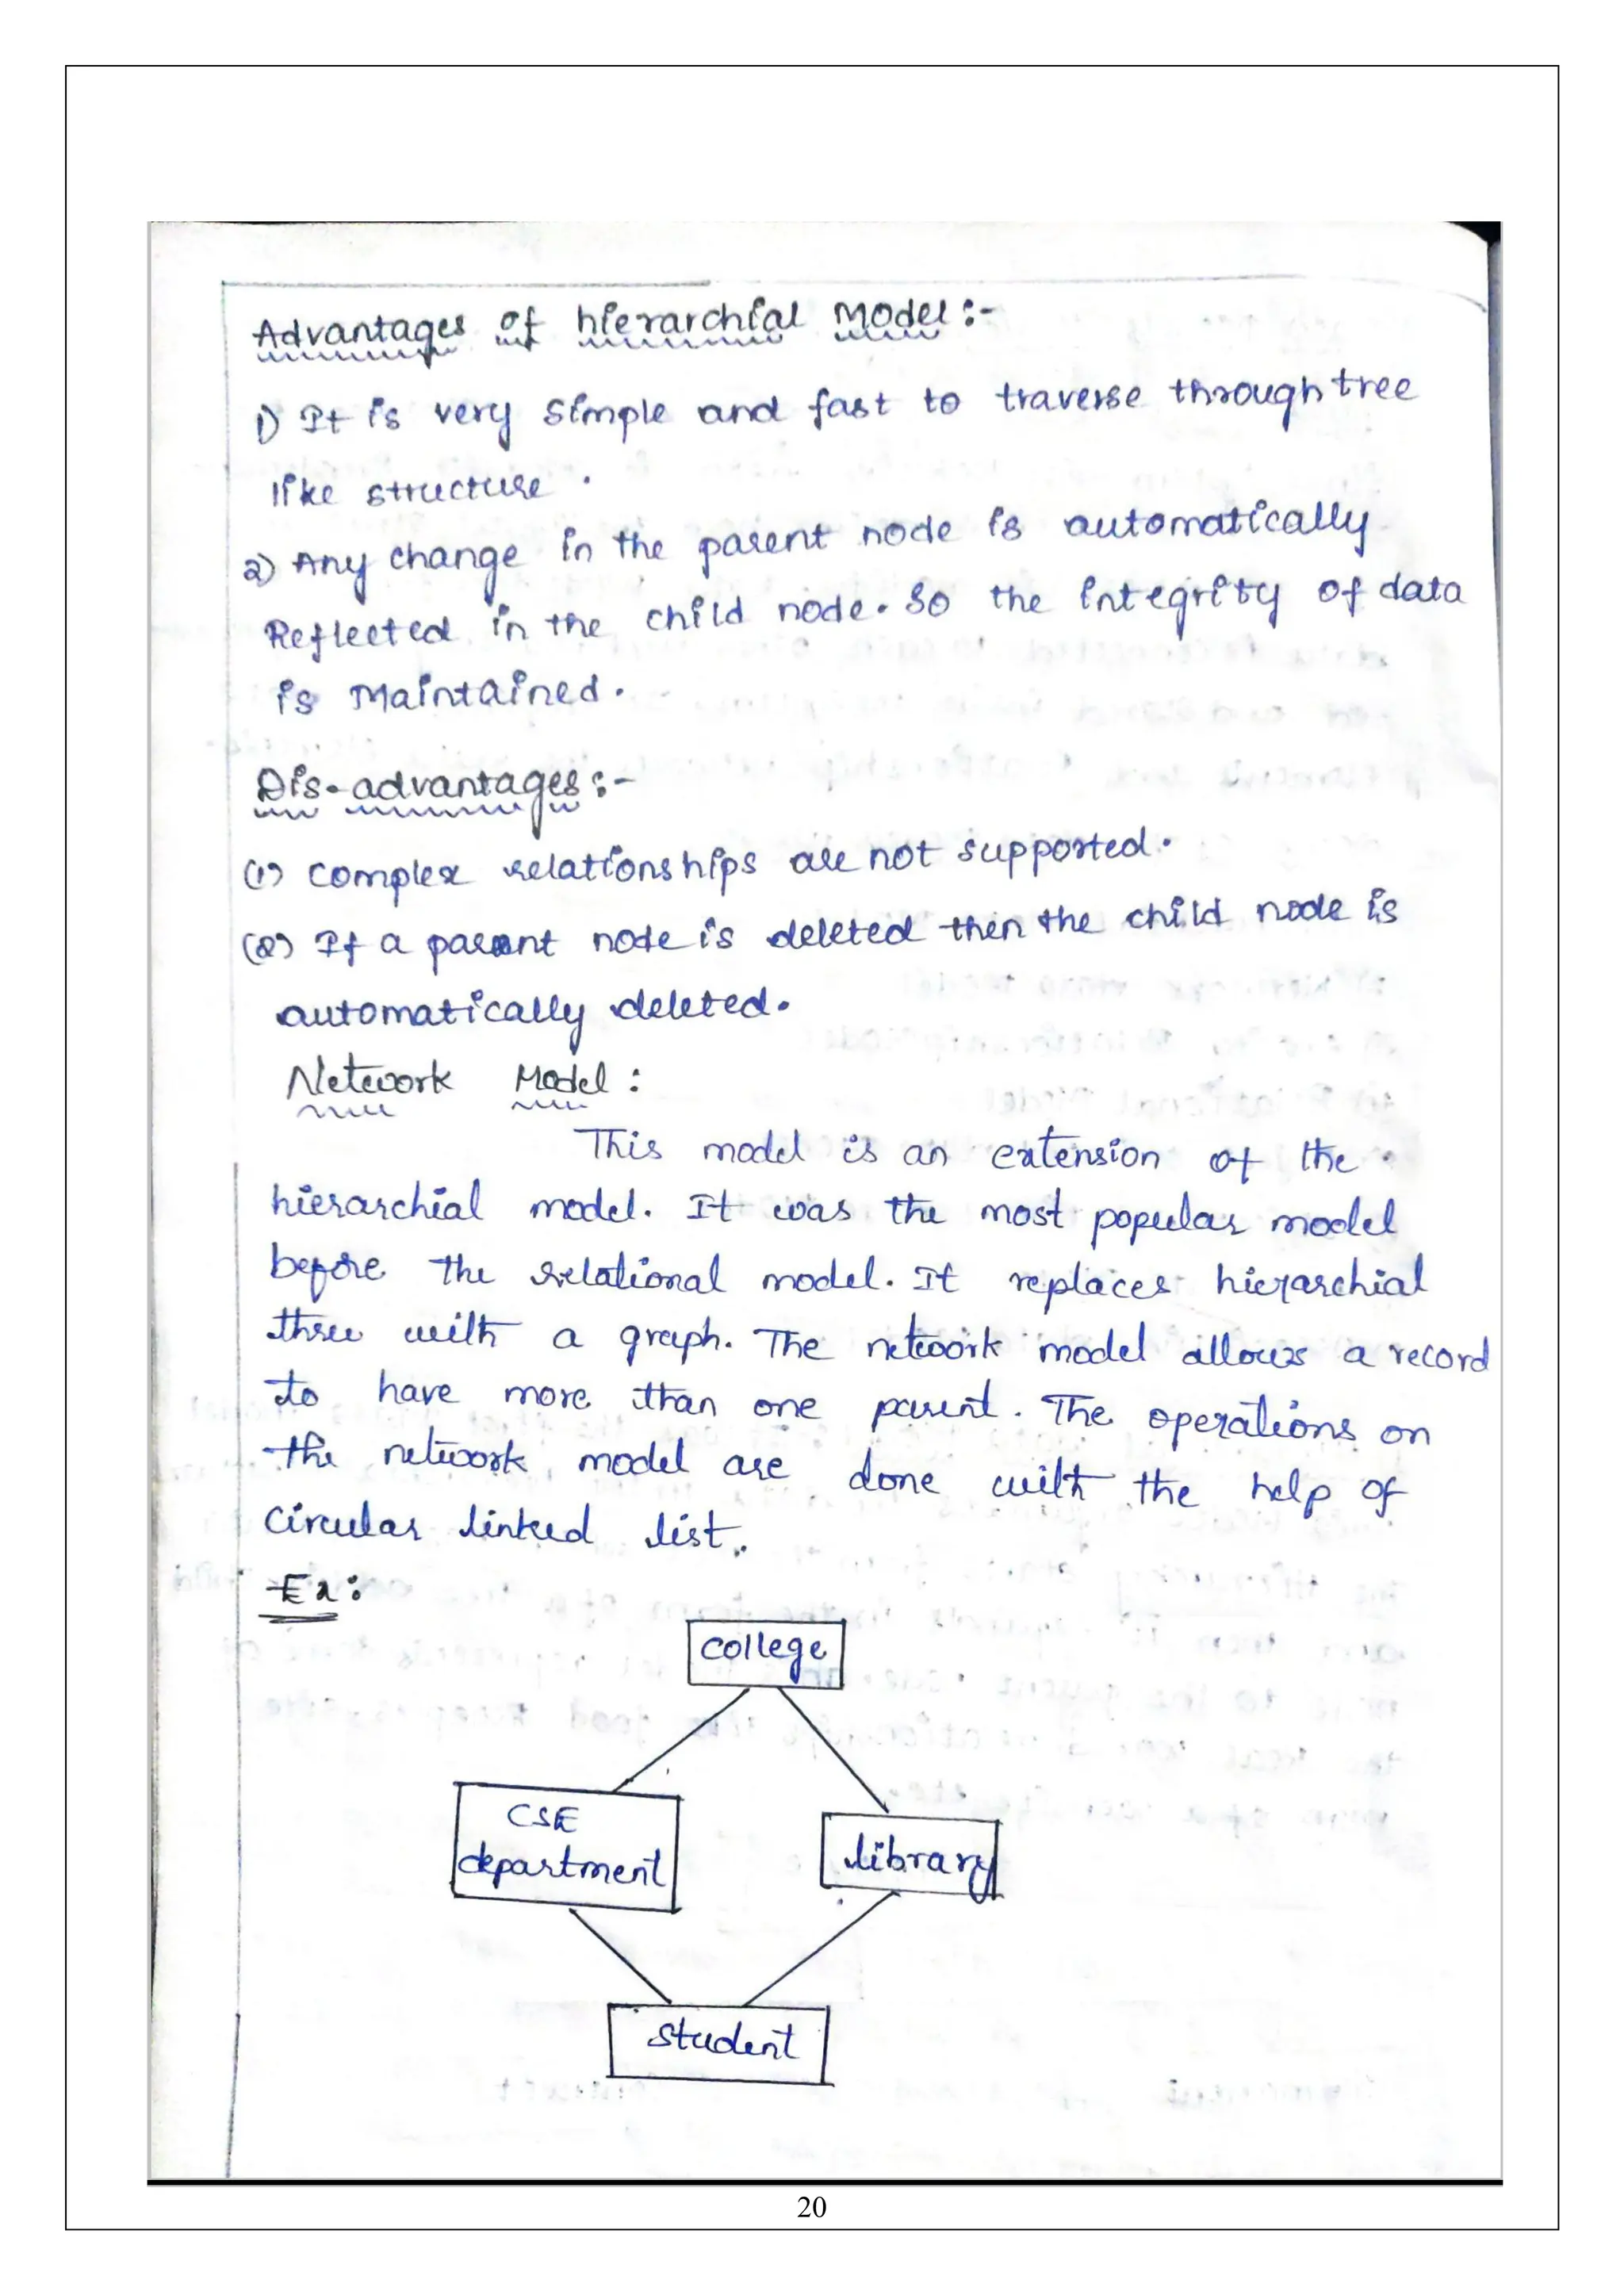 Advantages of hierarchial Model:-
1) It is very simple and fast to traverse through tree
like structure.
2) Any change in the parent node is automatically
Reflected in the child node. So the integrity of data
is Maintained.
Dis-advantages:-
(1) complex relationships are not supported.
(2) If a parent node is deleted then the child node is
automatically deleted.
Network Model:
This model is an extension of the
hierarchial model. It was the most popular model
before the relational model. It replaces hierarchial
three with a graph. The network model allows a record
to have more than one parent. The operations on
the network model are done with the help of
circular linked list.
Ex:
college
CSE
department
library
student
20